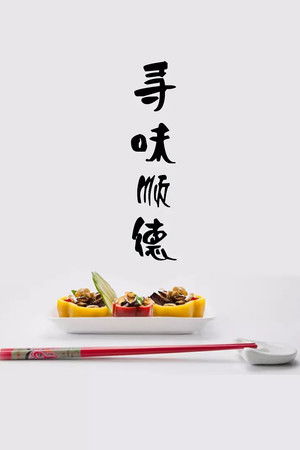 寻味顺德